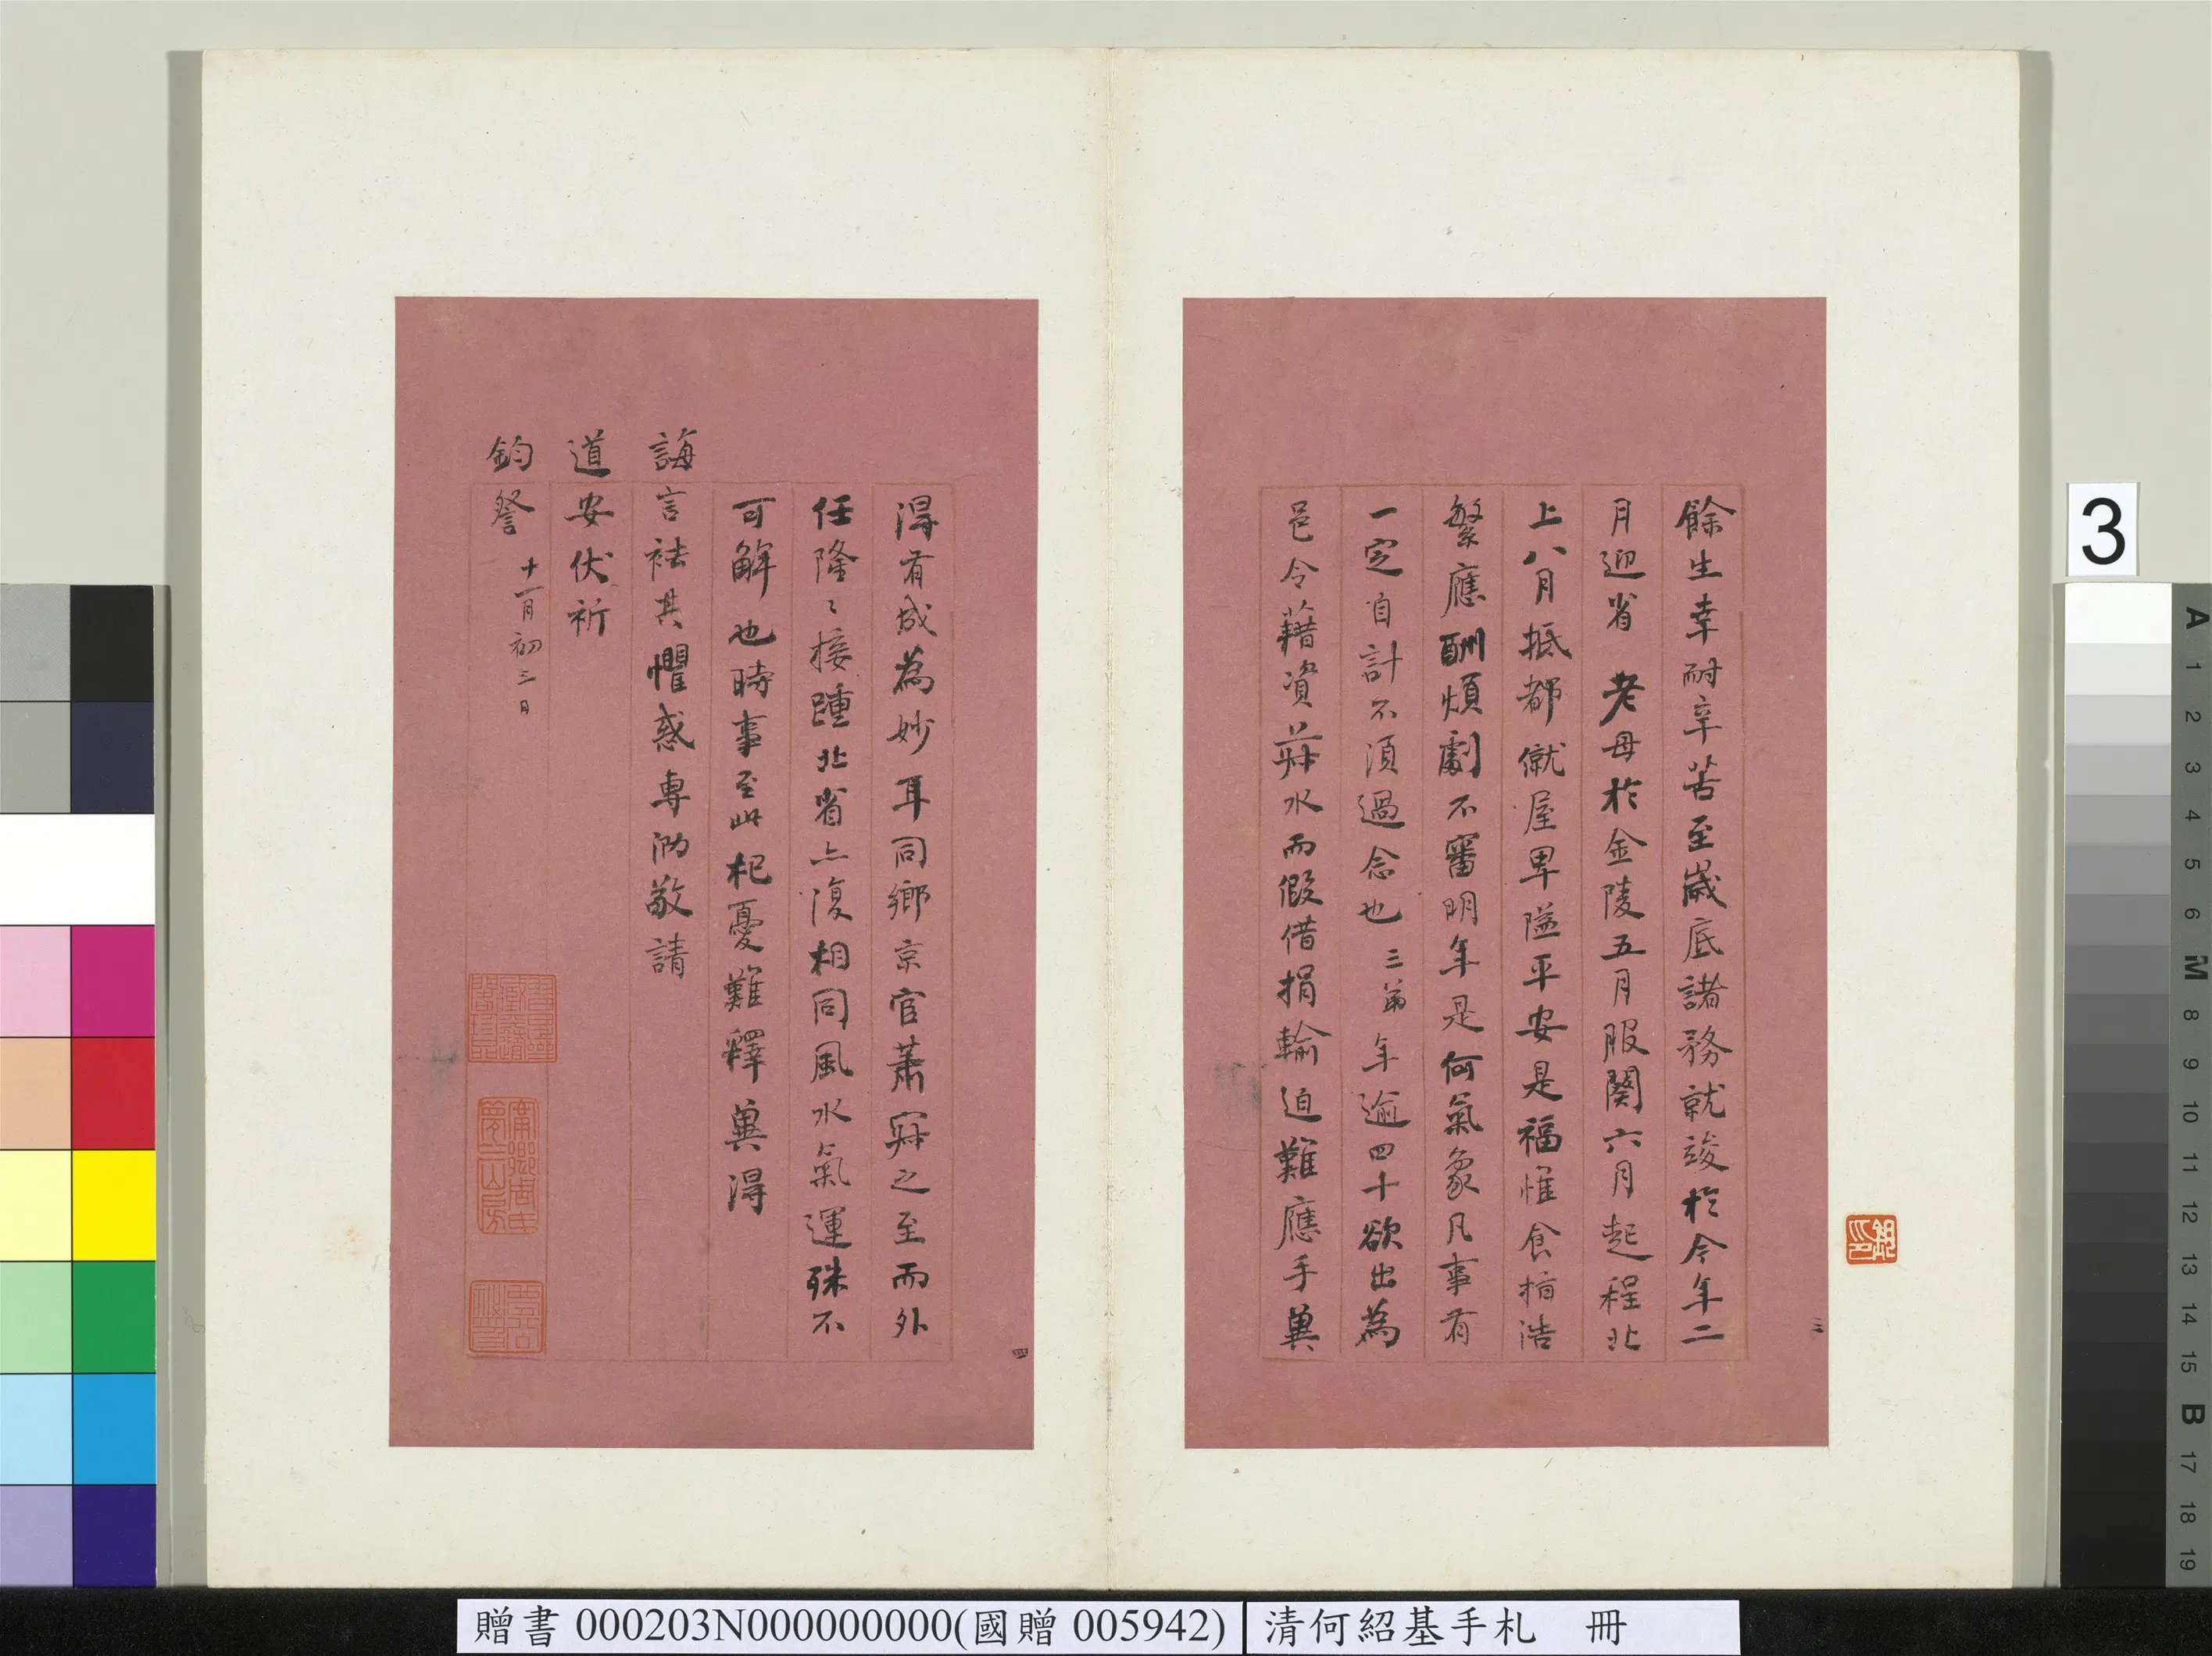 餘生幸耐辛苦至歲底諸務就竣於今年二
月迎省 老母於金陵五月服闋六月起程北
上八月抵都僦屋卑隘平安是福惟食指浩
繁應酬煩劇不審明年是何氣象凡事有
一定自計不須過念也三弟年逾四十欲出為
邑令藉資菽水而假借捐輸迫難應手冀
三
得有成為妙耳同鄉京官蕭寂之至而外
任隆〻接踵北省亦復相同風水氣運殊不
可解也時事至此杞憂難釋冀得
誨言祛其懼惑專泐敬請
道安伏祈
鈞詧 十一月初三日
四
3
A 1 2 3 4 5 6 M 8 9 10 11 12 13 14 15 B 17 18 19
贈書 000203N000000000(國贈 005942) 清何紹基手札 冊